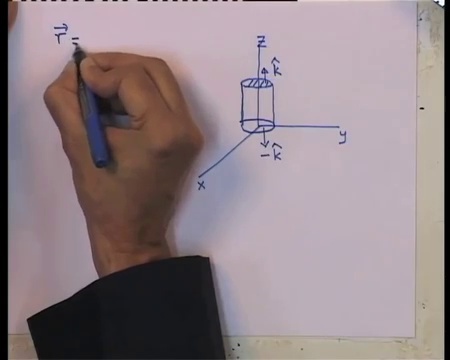 r⃗ =
z
k̂
y
-k̂
x